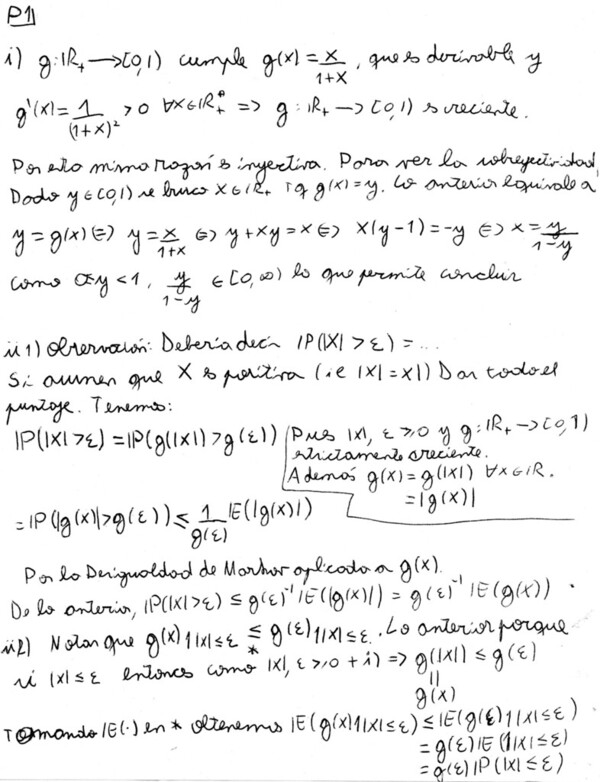 P1
i) g: ℝ₊ → [0,1) cumple g(x) = x/(1+x), que es derivable y
g'(x) = 1/(1+x)² > 0 ∀x∈ℝ₊* => g: ℝ₊ → [0,1) es creciente.
Por ello misma razón es inyectiva. Para ver la sobreyectividad,
Dado y∈[0,1) se busca x∈ℝ₊ tq g(x)=y. Lo anterior equivale a
y = g(x) ⇔ y = x/(1+x) ⇔ y + xy = x ⇔ x(y-1) = -y ⇔ x = y/(1-y)
como 0≤y<1, y/(1-y) ∈ [0,∞) lo que permite concluir
ii1) Observación: Debería decir ℙ(|X| > ε) = ...
Si asumen que X es positiva (ie |X| = X|) Dar todo el
puntaje. Tenemos:
ℙ(|X| > ε) = ℙ(g(|X|) > g(ε))
Pues |x|, ε ≥ 0 y g: ℝ₊ → [0,1)
estrictamente creciente.
Además g(x) = g(|x|) ∀x∈ℝ.
= |g(x)|
= ℙ(|g(X)| > g(ε)) ≤ 1/g(ε) 𝔼(|g(X)|)
Por la Desigualdad de Markov aplicada a g(X).
De lo anterior, ℙ(|X| > ε) ≤ g(ε)⁻¹ 𝔼(|g(X)|) = g(ε)⁻¹ 𝔼(g(X)) .
ii2) Notar que g(X) 1|X|≤ε ≤* g(ε) 1|X|≤ε. Lo anterior porque
si |X| ≤ ε entonces como |X|, ε ≥ 0 + i) => g(|X|) ≤ g(ε)
||
g(X)
Tomando 𝔼(·) en * obtenemos 𝔼(g(X) 1|X|≤ε) ≤ 𝔼(g(ε) 1|X|≤ε)
= g(ε) 𝔼(1|X|≤ε)
= g(ε) ℙ(|X| ≤ ε)